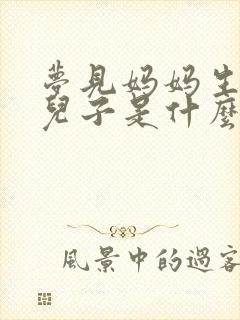 夢見媽媽生
兒子是什麼
風景中的過客